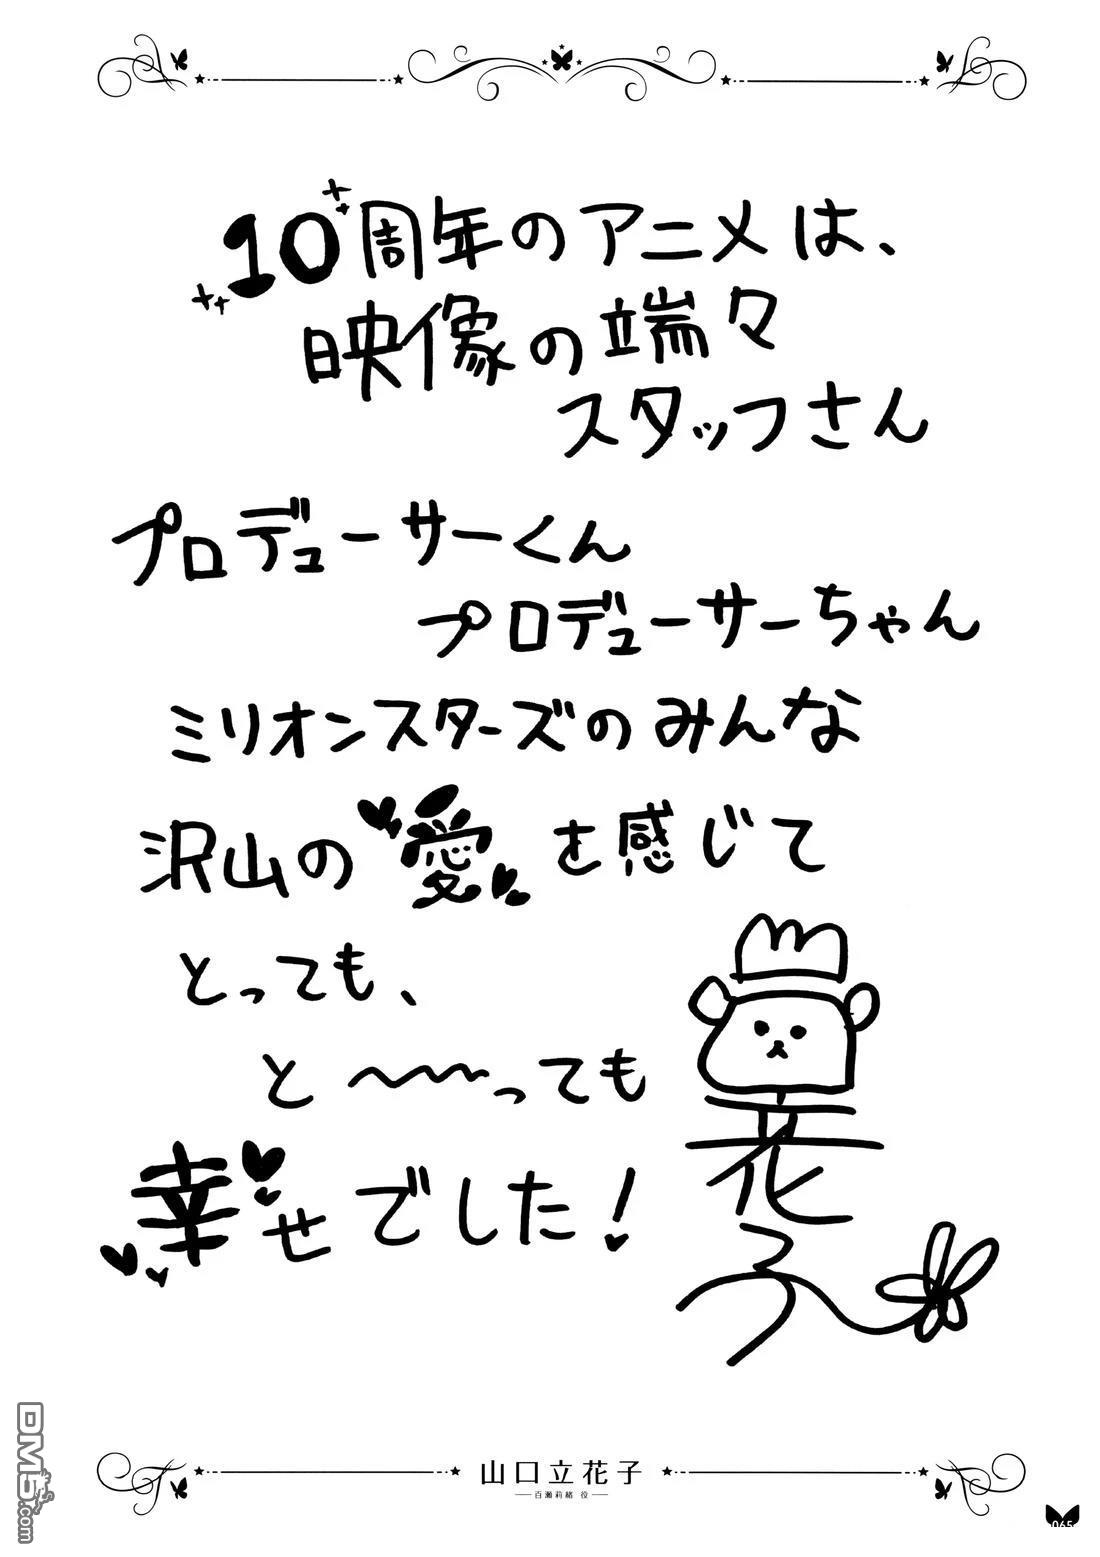 10周年のアニメは、
映像の端々
スタッフさん
プロデューサーくん
プロデューサーちゃん
ミリオンスターズのみんな
沢山の愛を感じて
とっても、
と〜〜〜っても
幸せでした!
立花子
山口立花子
百瀬莉緒 役
065
DM5.com